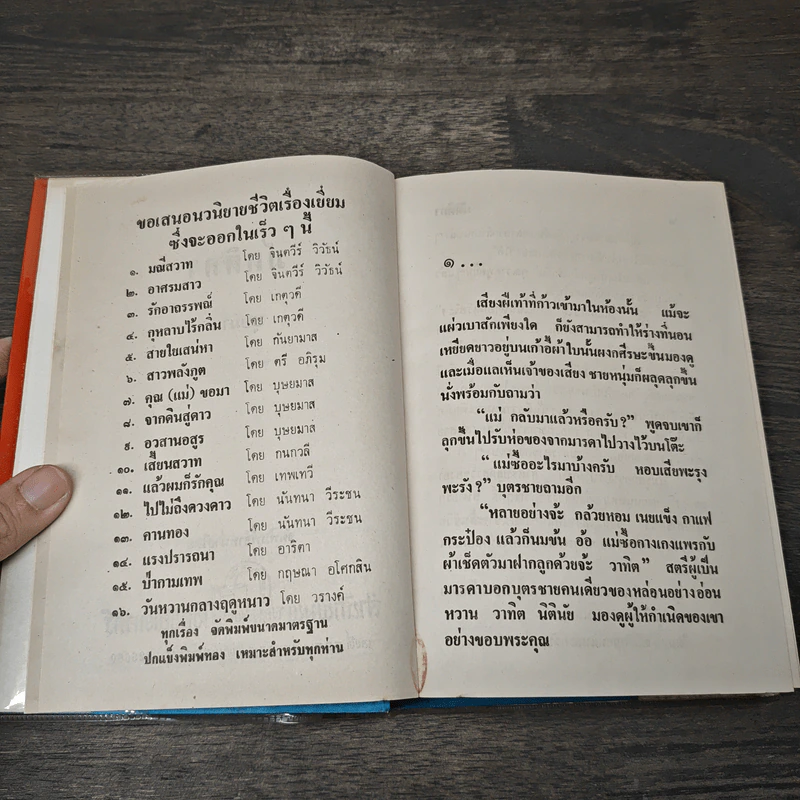 ขอเสนอนวนิยายชีวิตเรื่องเยี่ยม
ซึ่งจะออกในเร็ว ๆ นี้
๑. มณีสวาท โดย จินตวีร์ วิวัธน์
๒. อาศรมสาว โดย จินตวีร์ วิวัธน์
๓. รักอาถรรพณ์ โดย เกตุวดี
๔. กุหลาบไร้กลิ่น โดย เกตุวดี
๕. สายใยเสน่หา โดย กันยามาส
๖. สาวพลังภูต โดย ตรี อภิรุม
๗. คุณ (แม่) ขอมา โดย บุษยมาส
๘. จากดินสู่ดาว โดย บุษยมาส
๙. อวสานอสูร โดย บุษยมาส
๑๐. เสี้ยนสวาท โดย กนกวลี
๑๑. แล้วผมก็รักคุณ โดย เทพเทวี
๑๒. ไปไม่ถึงดวงดาว โดย นันทนา วีระชน
๑๓. คานทอง โดย นันทนา วีระชน
๑๔. แรงปรารถนา โดย อาริตา
๑๕. ป่ากามเทพ โดย กฤษณา อโศกสิน
๑๖. วันหวานกลางฤดูหนาว โดย วรางค์
ทุกเรื่อง จัดพิมพ์ขนาดมาตรฐาน
ปกแข็งพิมพ์ทอง เหมาะสำหรับทุกท่าน
๑ ...
เสียงฝีเท้าที่ก้าวเข้ามาในห้องนั้น แม้จะ
แผ่วเบาสักเพียงใด ก็ยังสามารถทำให้ร่างที่นอน
เหยียดยาวอยู่บนเก้าอี้ผ้าใบนั้นผงกศีรษะขึ้นมองดู
และเมื่อแลเห็นเจ้าของเสียง ชายหนุ่มก็ผลุดลุกขึ้น
นั่งพร้อมกับถามว่า
“แม่ กลับมาแล้วหรือครับ?” พูดจบเขาก็
ลุกขึ้นไปรับห่อของจากมารดาไปวางไว้บนโต๊ะ
“แม่ซื้ออะไรมาบ้างครับ หอบเสียพะรุง
พะรัง?” บุตรชายถามอีก
“หลายอย่างจ้ะ กล้วยหอม เนยแข็ง กาแฟ
กระป๋อง แล้วก็นมข้น อ้อ แม่ซื้อกางเกงแพรกับ
ผ้าเช็ดตัวมาฝากลูกด้วยจ้ะ วาทิต” สตรีผู้เป็น
มารดาบอกบุตรชายคนเดียวของหล่อนอย่างอ่อน
หวาน วาทิต นิตินัย มองดูผู้ให้กำเนิดของเขา
อย่างขอบพระคุณ